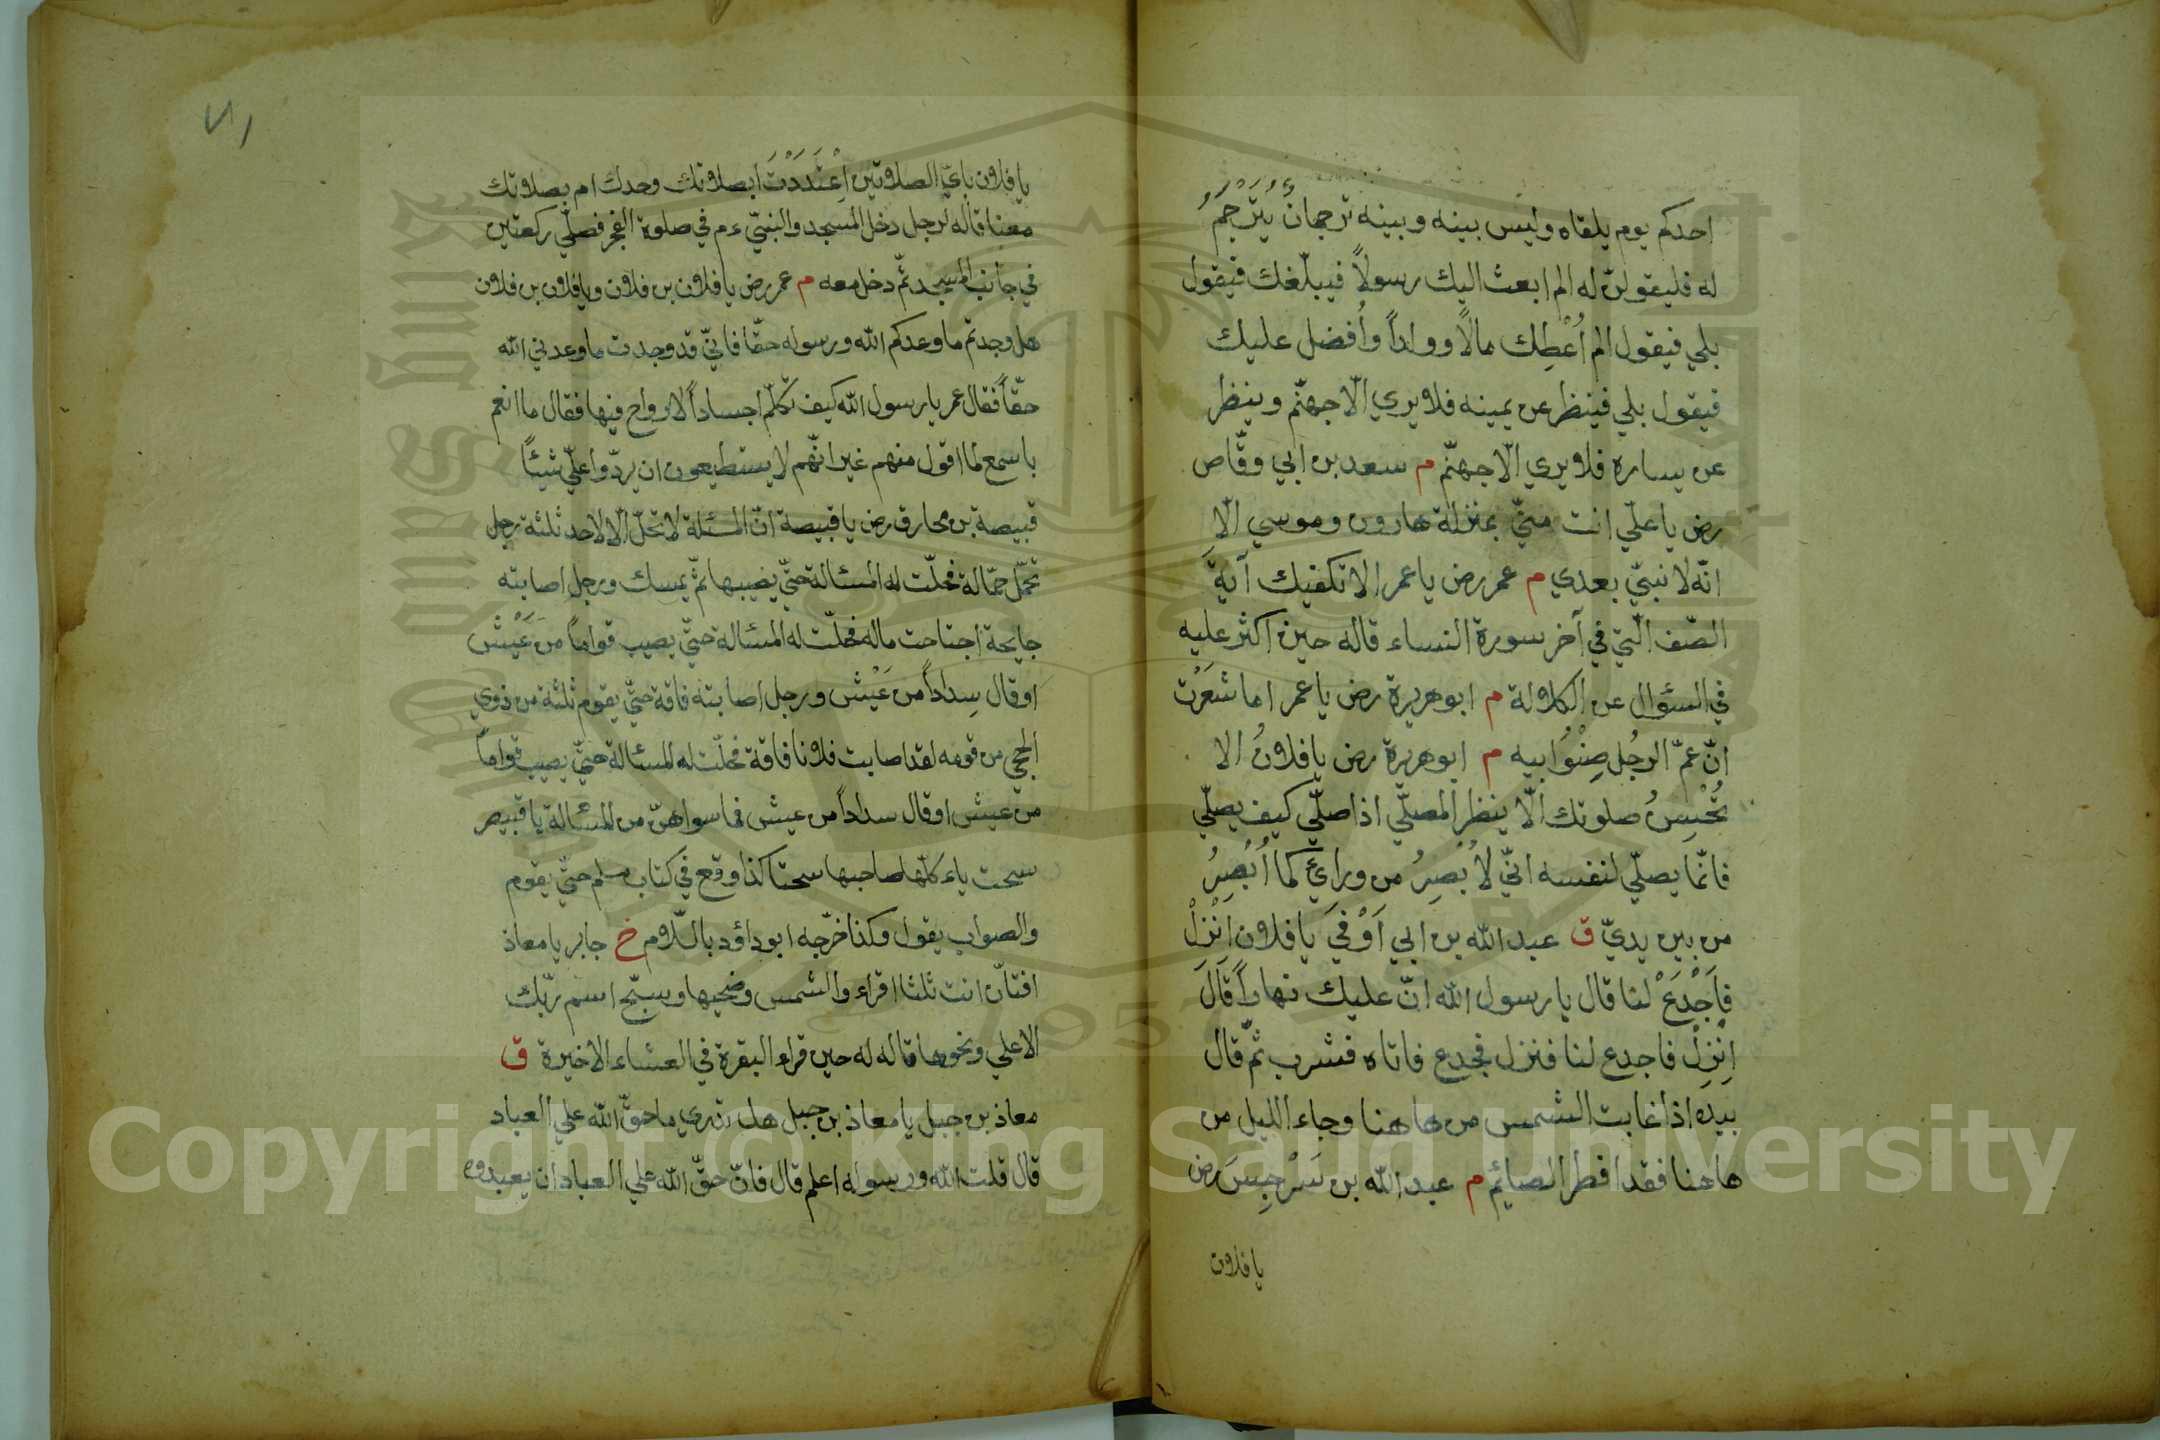 احدكم يوم يلقاه وليس بينه وبينه ترجمانٌ يُتَرْجِمُ
له فليقولنّ له الم ابعث اليك رسولاً فيبلّغك فيقول
بلي فيقول الم اُعْطِك مالاً وولداً واُفضل عليك
فيقول بلي فينظر عن يمينه فلا يري الّا جهنّم وينظر
عن يساره فلا يري الّا جهنّم م سعد بن ابي وقّاص
رض يا علّي انت منيّ بمنزلة هارون وموسي الّا
انّه لا نبيّ بعدي م عمر رض يا عمر الا تكفيك آيةَ
الصّف الّتي في آخر سورة النساء قاله حين اكثر عليه
في السؤال عن الكلالة م ابو هريرة رض يا عمر اما شَعَرْت
انّ عمّ الرجُل صِنْوُ ابيه م ابوهريرة رض يا فلانُ الا
تُحْسِنُ صلوتك الّا ينظر المصلّي اذا صلّي كيف يصلّي
فانّما يصلّي لنفسه انيّ لاُبْصِرُ من ورائي كما اُبْصِرُ
من بين يديّ ق عبد الله بن ابي اَوْفيَ يا فلان اِنْزِلْ
فاَجْدَعْ لنا قال يا رسول الله انّ عليك نهاراً قَالَ
اِنْزِلْ فاجدع لنا فنزل فجدع فاتاه فشرب ثمّ قال
بيده اذا غابت الشمس من هاهنا وجاء الليل من
هاهنا فقد افطر الصائم م عبد الله بن سَرْجِسَ رض
يا فلان
٧١
يا فلان بايّ الصلاتين اِعْتَدَدْتَ ابصلاتك وحدك ام بصلاتك
معنا قاله لرجل دخل المسجد والنبيّ ءم في صلوة الفجر فصلّي ركعتين
في جانب المسجد ثمّ دخل معه م عمر رض يا فلان بن فلان ويا فلان بن فلان
هل وجدتم ما وعدكم الله ورسوله حقّا فانيّ قد وجدت ما وعدني الله
حقّاً فقال عمر يا رسول الله كيف تكلّم اجساداً لا ارواح فيها فقال ما انتم
باسمع لما اقول منهم غير انّهم لا يستطيعون ان يردّوا عليّ شيئاً
قبيصة بن مخارق رض يا قبيصة انّ المسئلة لا تحلّ الّا لاحد ثلثة رجل
تحمّل حمّالة فحلّت له المسئالة حتيّ يصيبها ثمّ يمسك ورجل اصابته
جايحة اجتاحت ماله فحلّت له المسئالة حتيّ يصيب قواماً من عَيْش
اوقال سِداداً من عَيْش ورجل اصابته فاقة حتيّ يقوم ثلثة من ذوي
الحجي من قومه لقد اصابت فلانا فاقة فحلّت له المسئالة حتيّ يصيب قواماً
من عيش اوقال سداداً من عيش فما سواهنّ من المسئالة يا قبيصر
سحت ياءكلها صاحبها سحتا كذا وقع في كتاب مسلم حتيّ يقوم
والصواب يقول وكذا خرّجه ابو داؤد بالّلام خ جابر يا معاذ
افتّان انت ثلثا اقراء والشمس وضحيها وسبّح اسم ربّك
الاعلي ونحوها قاله له حين قراء البقرة في العشاء الاخيرة ق
معاذ بن جبل يا معاذ بن جبل هل تدري ما حقّ الله علي العباد
قال قلت الله ورسوله اعلم قال فانّ حقّ الله علي العباد ان يعبدوه
Copyright © King Saud University
1957